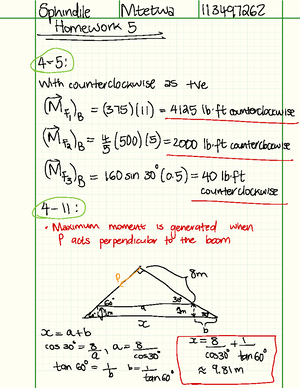 Sphindile Mtetwa 113497262
Homework 5
4-5:
With counterclockwise as +ve
(M⃗F1)B = (375)(11) = 4125 lb·ft counterclockwise
(M⃗F2)B = 4/5 (500)(5) = 2000 lb·ft counterclockwise
(M⃗F3)B = 160 sin 30° (0.5) = 40 lb·ft
counterclockwise
4-11:
• Maximum moment is generated when
P acts perpendicular to the boom
P
8m
60°
30°
a
1m
x
b
x = a+b
cos30° = 8/a , a = 8/cos30°
tan 60° = 1/b b = 1/tan60°
x = 8/cos30° + 1/tan60°
≈ 9.81m